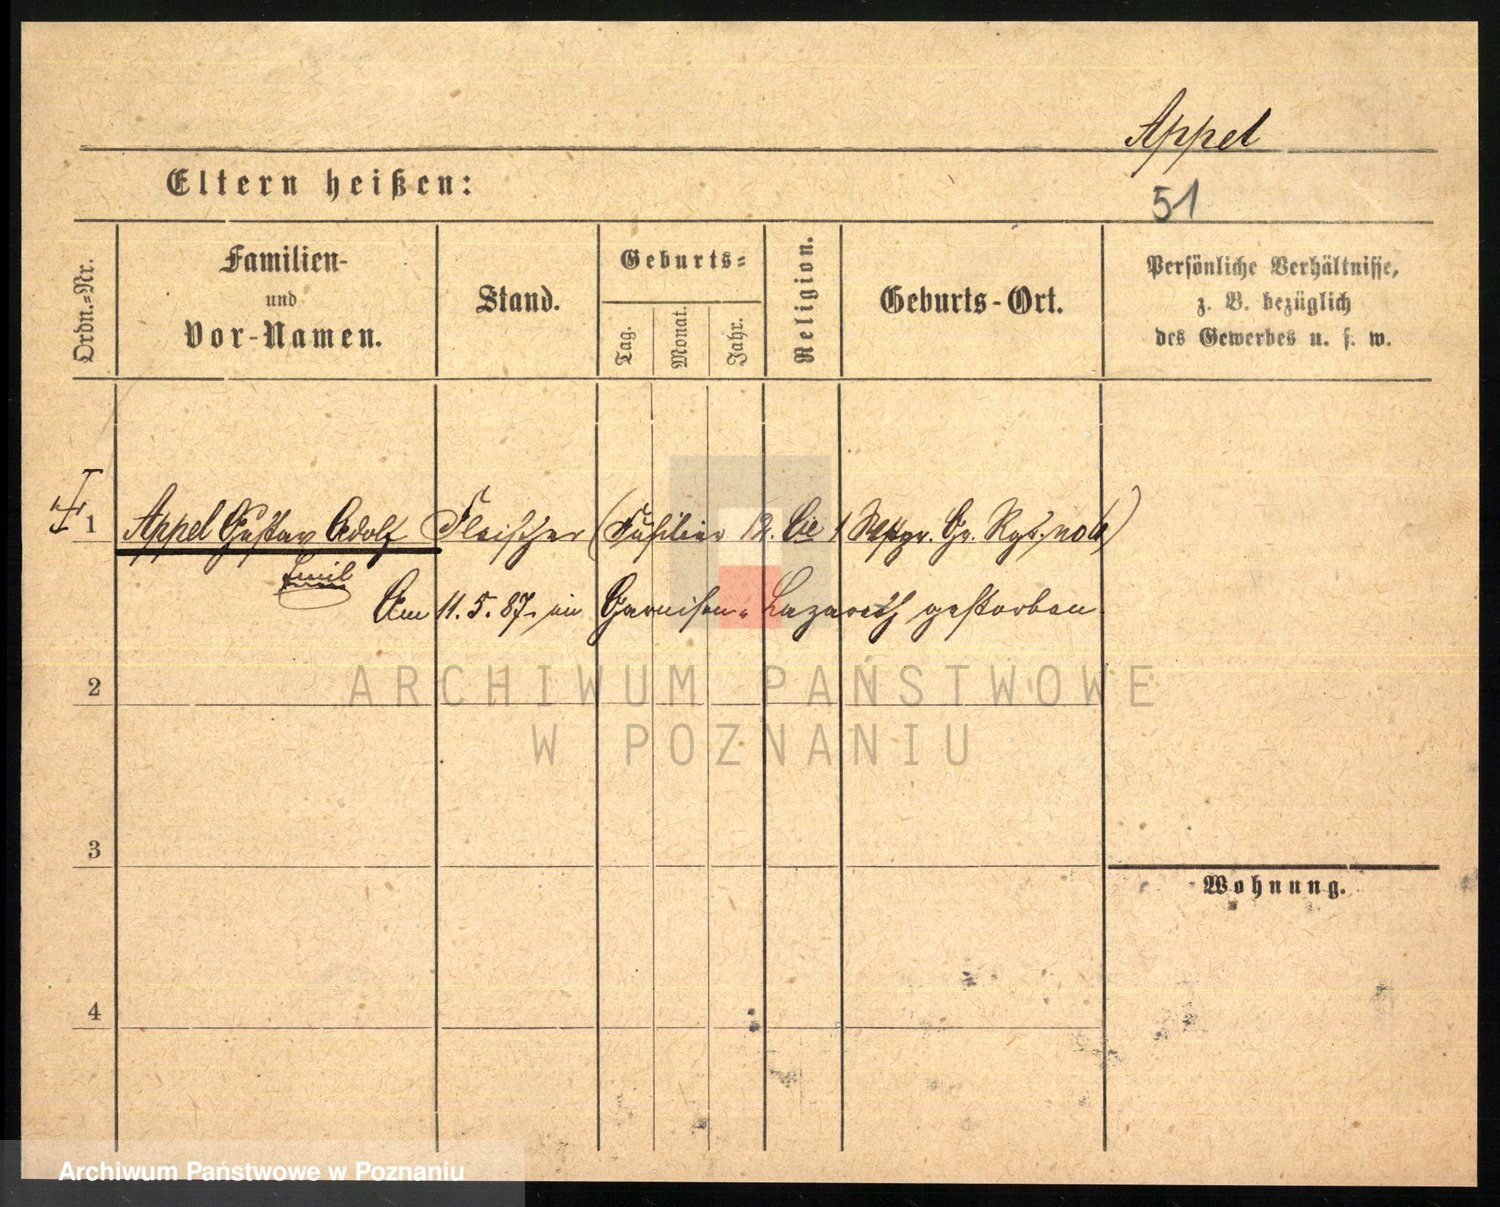 Appel
Eltern heißen:
51
Ordn.=Nr.
Familien-
und
Vor-Namen.
Stand.
Geburts=
Tag.
Monat.
Jahr.
Religion.
Geburts-Ort.
Persönliche Verhältnisse,
z. B. bezüglich
des Gewerbes u. s. w.
1 Appel Gustav Adolf Fleischer (Füsilier 12. Cie 1 Westpr. Gr. Rgt. no 6)
Emil
Am 11. 5. 87. im Garnison-Lazareth gestorben.
2
ARCHIWUM PAŃSTWOWE
W POZNANIU
3
Wohnung.
4
Archiwum Państwowe w Poznaniu